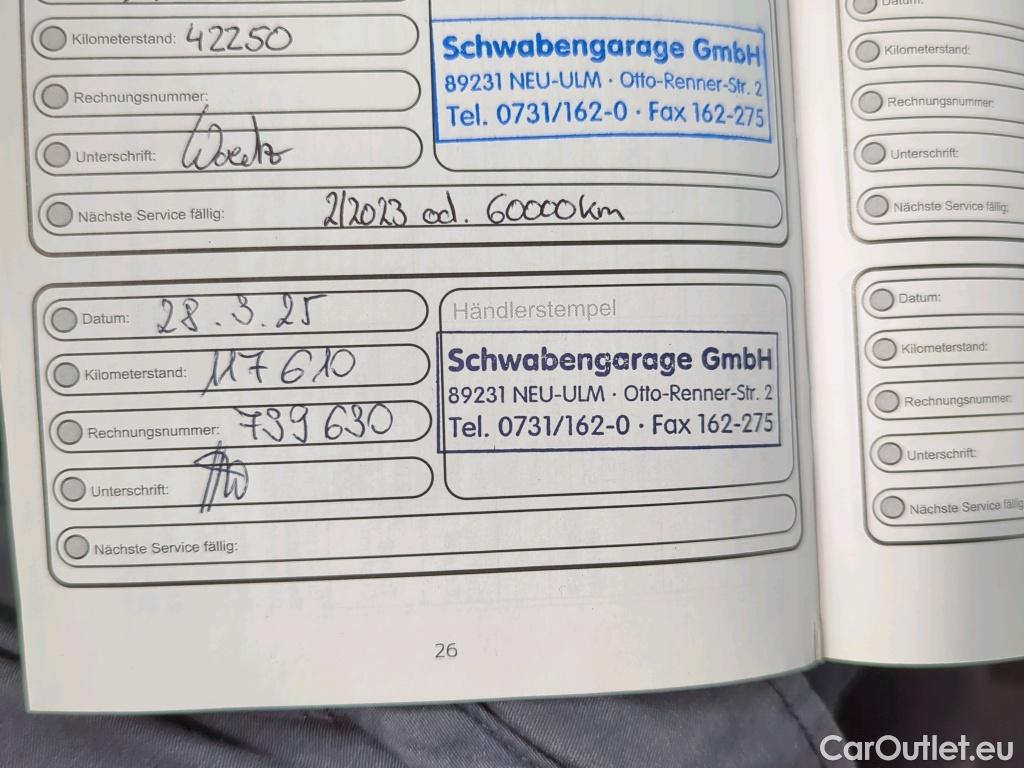 Kilometerstand: 42250
Rechnungsnummer:
Unterschrift:
Nächste Service fällig: 2/2023 od. 60000km
Schwabengarage GmbH
89231 NEU-ULM · Otto-Renner-Str. 2
Tel. 0731/162-0 · Fax 162-275
Datum: 28.3.25
Kilometerstand: 117610
Rechnungsnummer: 739630
Unterschrift:
Nächste Service fällig:
Händlerstempel
Schwabengarage GmbH
89231 NEU-ULM · Otto-Renner-Str. 2
Tel. 0731/162-0 · Fax 162-275
26
Datum:
Kilometerstand:
Rechnungsnummer:
Unterschrift:
Nächste Service fällig:
Datum:
Kilometerstand:
Rechnungsnummer:
Unterschrift:
Nächste Service fällig
CarOutlet.eu